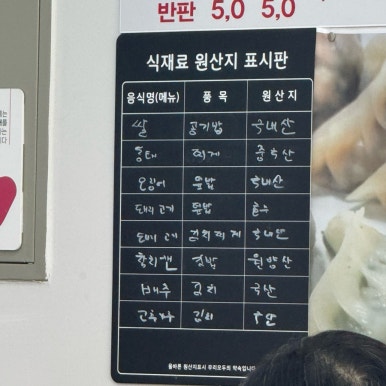 반판 5,0 5,0
식재료 원산지 표시판
음식명(메뉴) 품 목 원 산 지
쌀 공기밥 국내산
동태 찌게 중국산
오징어 덮밥 국내산
돼지고기 덮밥
돼지고기 김치찌게 국내산
참치캔 덮밥 원양산
배추 김치 국산
고추가 김치
올바른 원산지표시 우리모두의 약속입니다